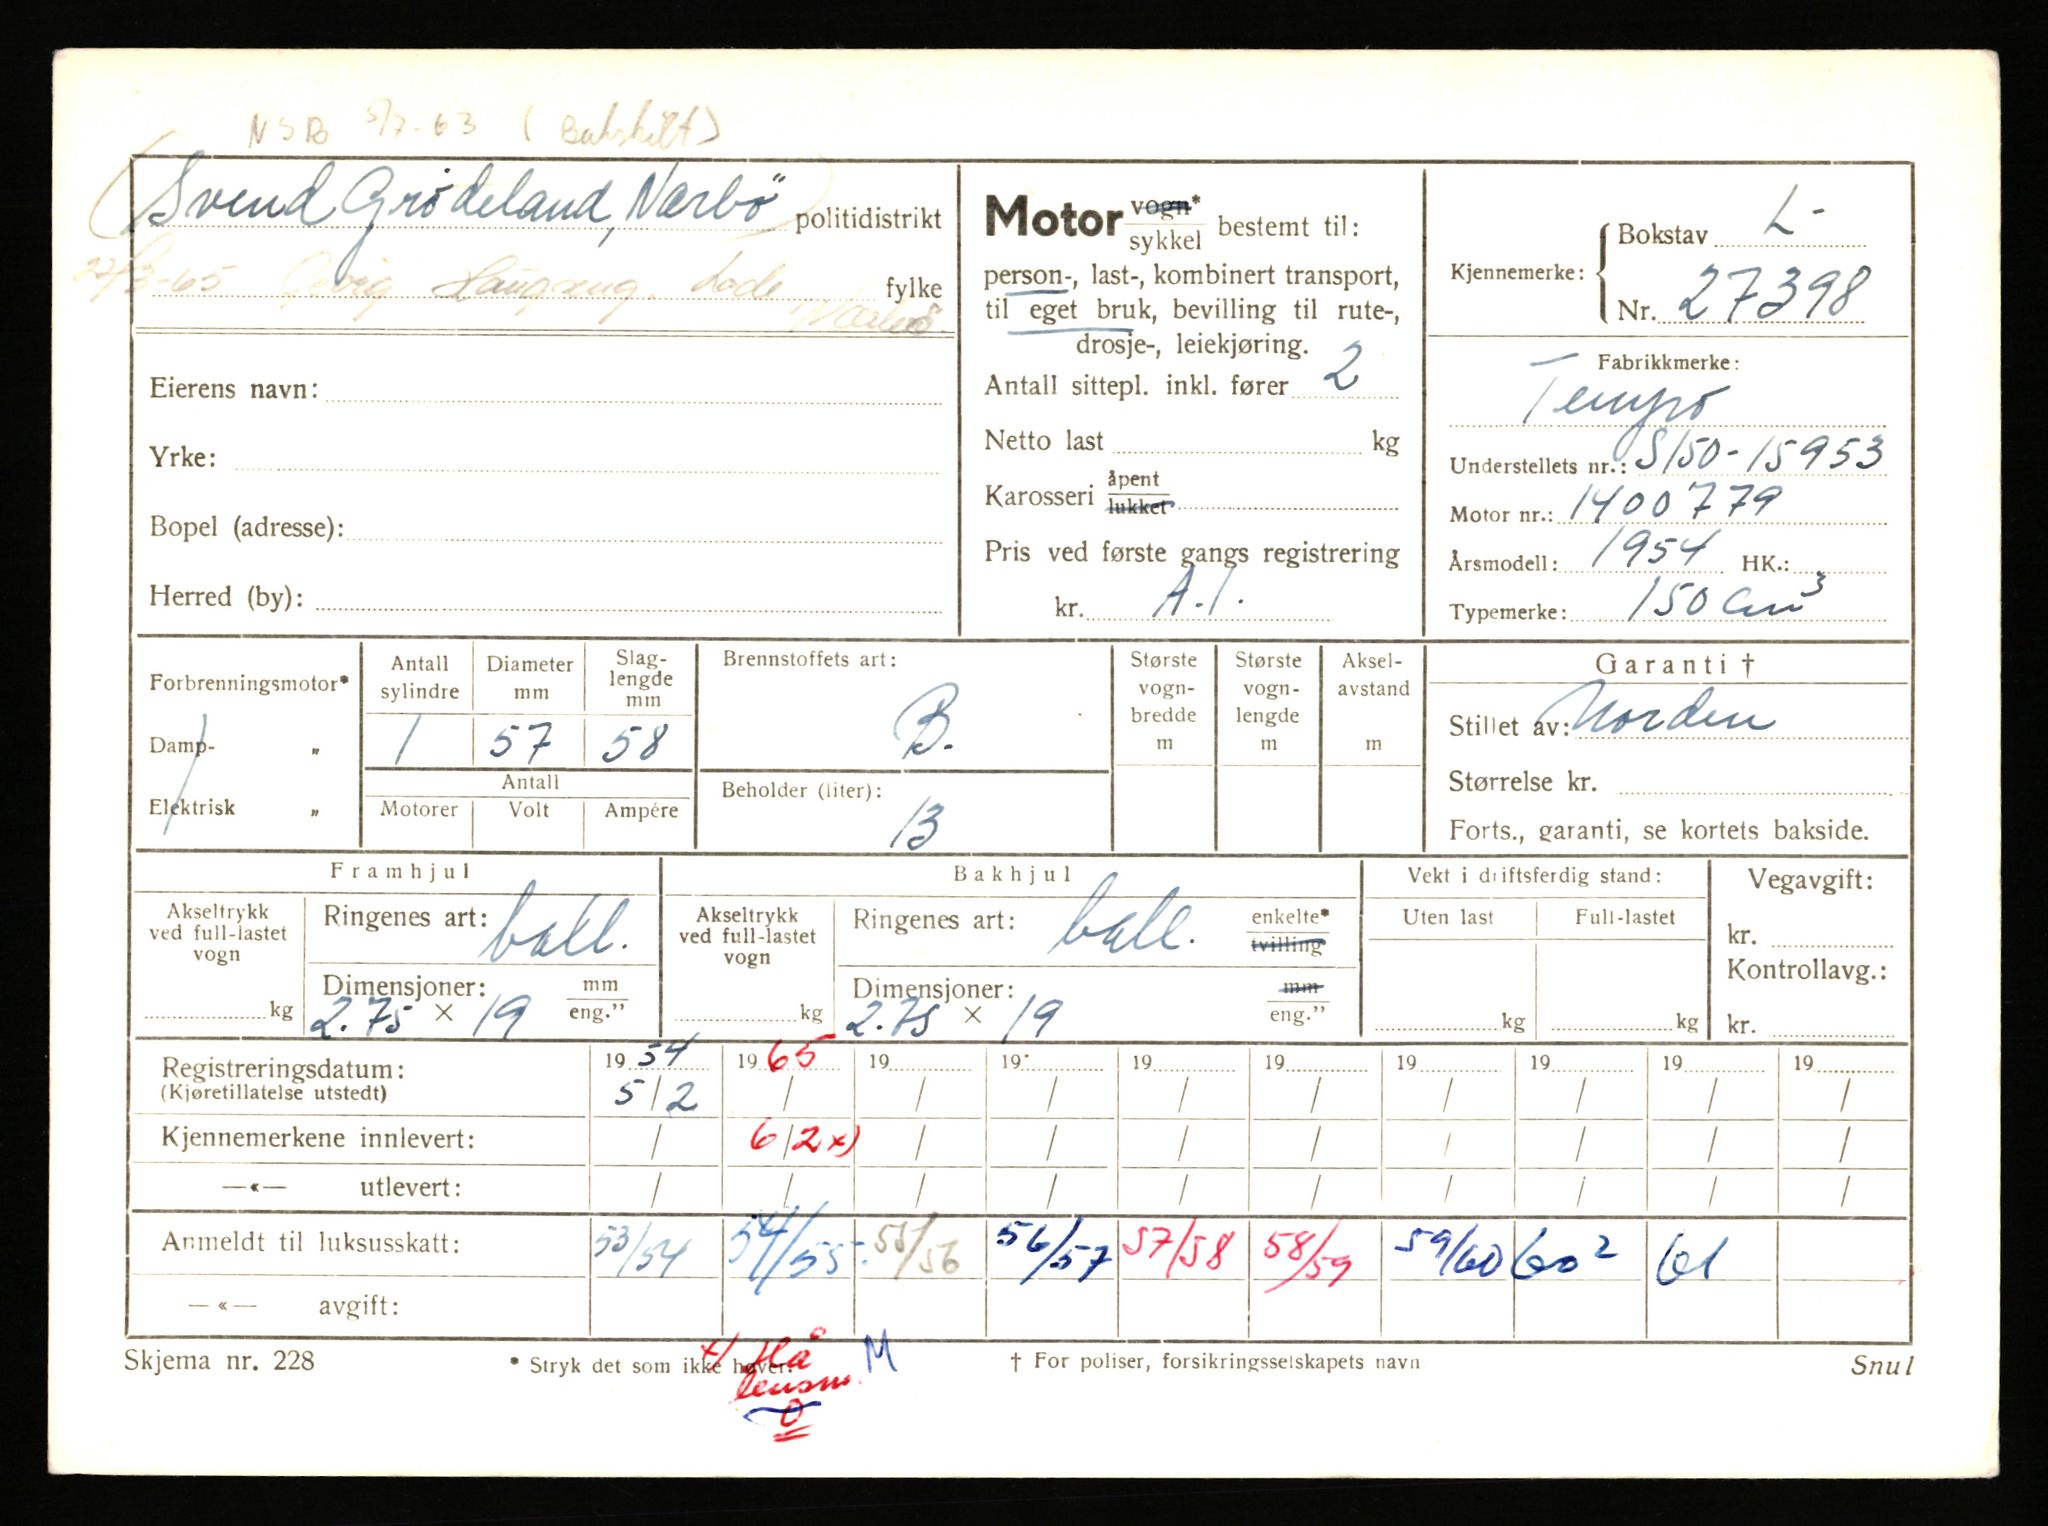 NSB 5/7-63 (Bakskilt)
(Svend Grödeland, Nærbö) politidistrikt
27/3-65 Haugseng fylke
Nærbö
Eierens navn:
Yrke:
Bopel (adresse):
Herred (by):
Motor vogn* / sykkel bestemt til:
person-, last-, kombinert transport,
til eget bruk, bevilling til rute-,
drosje-, leiekjøring.
Antall sittepl. inkl. fører 2
Netto last kg
Karosseri åpent / lukket
Pris ved første gangs registrering
kr. A.1.
Kjennemerke: Bokstav L-
Nr. 27398
Fabrikkmerke:
Tempo
Understellets nr.: S150-15953
Motor nr.: 1400779
Årsmodell: 1954 HK.:
Typemerke: 150 cm³
Forbrenningsmotor*
Damp- „
Elektrisk „
Antall sylindre Diameter mm Slag-lengde mm
1 57 58
Antall
Motorer Volt Ampére
Brennstoffets art:
B.
Beholder (liter):
13
Største vogn-bredde m
Største vogn-lengde m
Aksel-avstand m
Garanti †
Stillet av: Norden
Størrelse kr.
Forts., garanti, se kortets bakside.
Framhjul
Akseltrykk ved full-lastet vogn kg
Ringenes art: ball.
Dimensjoner: mm / eng."
2.75 × 19
Bakhjul
Akseltrykk ved full-lastet vogn kg
Ringenes art: ball. enkelte* / tvilling
Dimensjoner: mm / eng."
2.75 × 19
Vekt i driftsferdig stand:
Uten last Full-lastet
kg kg
Vegavgift:
kr.
Kontrollavg.:
kr.
Registreringsdatum: 1954 1965 19 19 19 19 19 19 19 19
(Kjøretillatelse utstedt) 5/2 / / / / / / / / /
Kjennemerkene innlevert: / 6/2 x) / / / / / / / /
—«— utlevert: / / / / / / / / / /
Anmeldt til luksusskatt: 53/54 54/55 55/56 56/57 57/58 58/59 59/60 60² 61
—«— avgift:
Skjema nr. 228 * Stryk det som ikke høver. † For poliser, forsikringsselskapets navn Snul
x) Hå M
lensm.
0